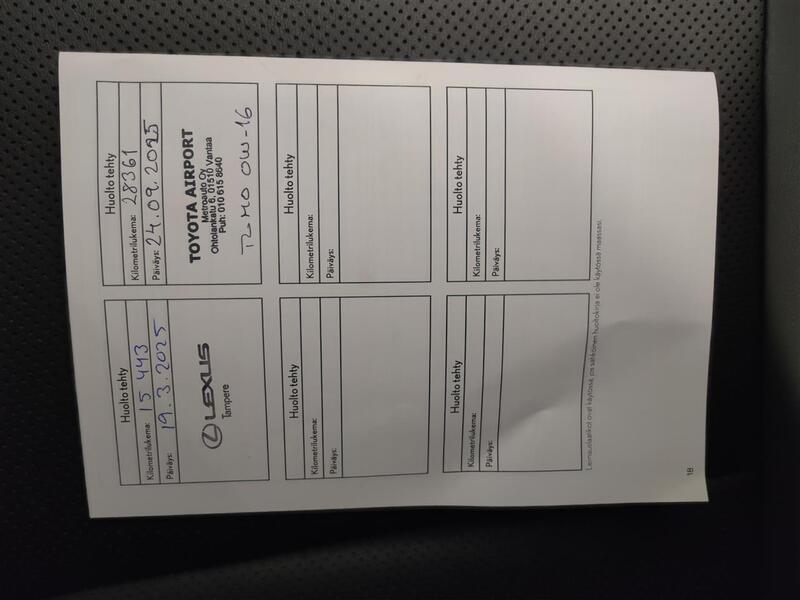 Huolto tehty
Kilometrilukema: 15 443
Päiväys: 19.3.2025
LEXUS
Tampere
Huolto tehty
Kilometrilukema: 28361
Päiväys: 24.09.2025
TOYOTA AIRPORT
Metroauto Oy
Ohtolankatu 6, 01510 Vantaa
Puh: 010 615 8640
0W-16
Huolto tehty
Kilometrilukema:
Päiväys:
Huolto tehty
Kilometrilukema:
Päiväys:
Huolto tehty
Kilometrilukema:
Päiväys:
Huolto tehty
Kilometrilukema:
Päiväys:
Leimauslaatikot ovat käytössä, jos sähköinen huoltokirja ei ole käytössä maassasi.
18